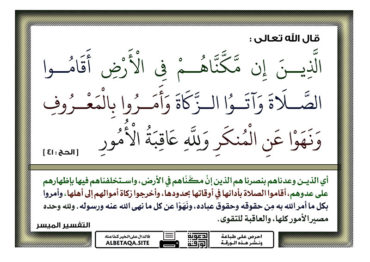 قال الله تعالى :
الَّذِينَ إِن مَّكَّنَّاهُمْ فِي الْأَرْضِ أَقَامُوا
الصَّلَاةَ وَآتَوُا الزَّكَاةَ وَأَمَرُوا بِالْمَعْرُوفِ
وَنَهَوْا عَنِ الْمُنكَرِ وَلِلَّهِ عَاقِبَةُ الْأُمُورِ
[ الحج : ٤١ ]
أي الذين وعدناهم بنصرنا هم الذين إنْ مكَّنَّاهم في الأرض، واستخلفناهم فيها بإظهارهم
على عدوهم، أقاموا الصلاة بأدائها في أوقاتها بحدودها، وأخرجوا زكاة أموالهم إلى أهلها، وأمروا
بكل ما أمر الله به من حقوقه وحقوق عباده، ونَهَوْا عن كل ما نهى الله عنه ورسوله. ولله وحده
مصير الأمور كلها، والعاقبة للتقوى.
التفسير الميسر
احرص على طباعة
ونشر هذه الورقة
فالدال على الخير كفاعله
ALBETAQA.SITE